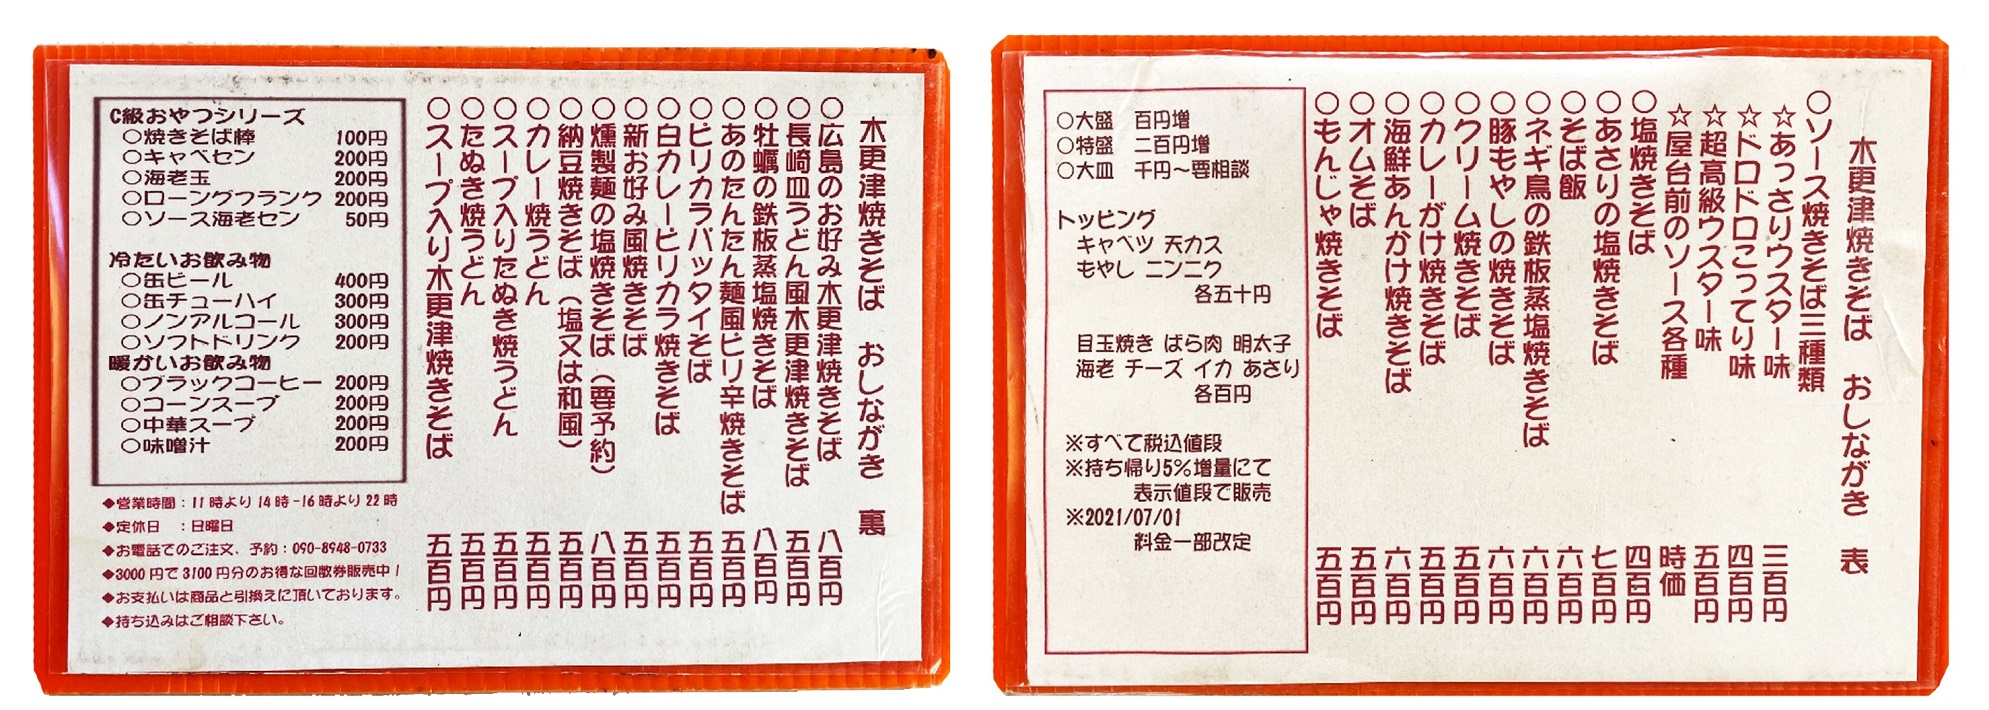 木更津焼きそば おしながき 表
○ソース焼きそば三種類
☆あっさりウスター味 三百円
☆ドロドロこってり味 四百円
☆超高級ウスター味 五百円
☆屋台前のソース各種 時価
○塩焼きそば 四百円
○あさりの塩焼きそば 七百円
○そば飯 六百円
○ネギ鳥の鉄板蒸塩焼きそば 六百円
○豚もやしの焼きそば 六百円
○クリーム焼きそば 五百円
○カレーがけ焼きそば 五百円
○海鮮あんかけ焼きそば 六百円
○オムそば 五百円
○もんじゃ焼きそば 五百円
○大盛 百円増
○特盛 二百円増
○大皿 千円～要相談
トッピング
キャベツ 天カス
もやし ニンニク
各五十円
目玉焼き ばら肉 明太子
海老 チーズ イカ あさり
各百円
※すべて税込値段
※持ち帰り5%増量にて
表示値段で販売
※2021/07/01
料金一部改定
木更津焼きそば おしながき 裏
○広島のお好み木更津焼きそば 八百円
○長崎皿うどん風木更津焼きそば 五百円
○牡蠣の鉄板蒸塩焼きそば 八百円
○あのたんたん麺風ピリ辛焼きそば 五百円
○ピリカラパッタイそば 五百円
○白カレーピリカラ焼きそば 五百円
○新お好み風焼きそば 五百円
○燻製麺の塩焼きそば（要予約） 八百円
○納豆焼きそば（塩又は和風） 五百円
○カレー焼うどん 五百円
○スープ入りたぬき焼うどん 五百円
○たぬき焼うどん 五百円
○スープ入り木更津焼きそば 五百円
C級おやつシリーズ
○焼きそば棒 100円
○キャベセン 200円
○海老玉 200円
○ロングフランク 200円
○ソース海老セン 50円
冷たいお飲み物
○缶ビール 400円
○缶チューハイ 300円
○ノンアルコール 300円
○ソフトドリンク 200円
暖かいお飲み物
○ブラックコーヒー 200円
○コーンスープ 200円
○中華スープ 200円
○味噌汁 200円
◆営業時間：11時より14時-16時より22時
◆定休日 ：日曜日
◆お電話でのご注文、予約：090-8948-0733
◆3000円で3100円分のお得な回数券販売中！
◆お支払いは商品と引換えに頂いております。
◆持ち込みはご相談下さい。